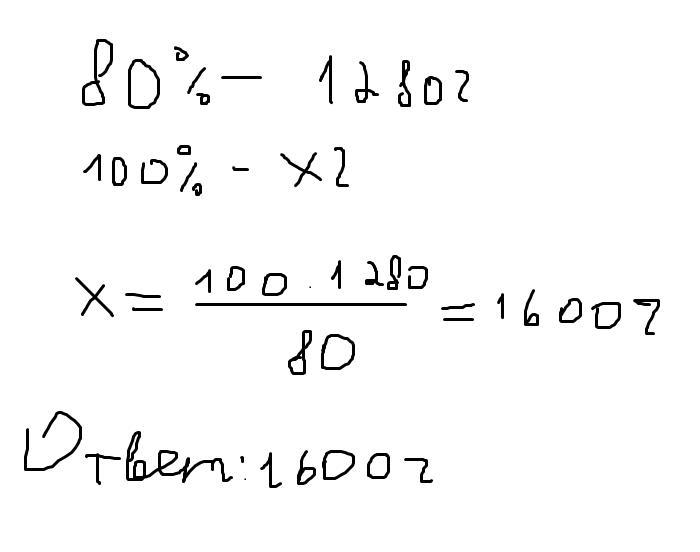 80% - 1280г
100% - xг
x = \frac{100 \cdot 1280}{80} = 1600г
Ответ: 1600г